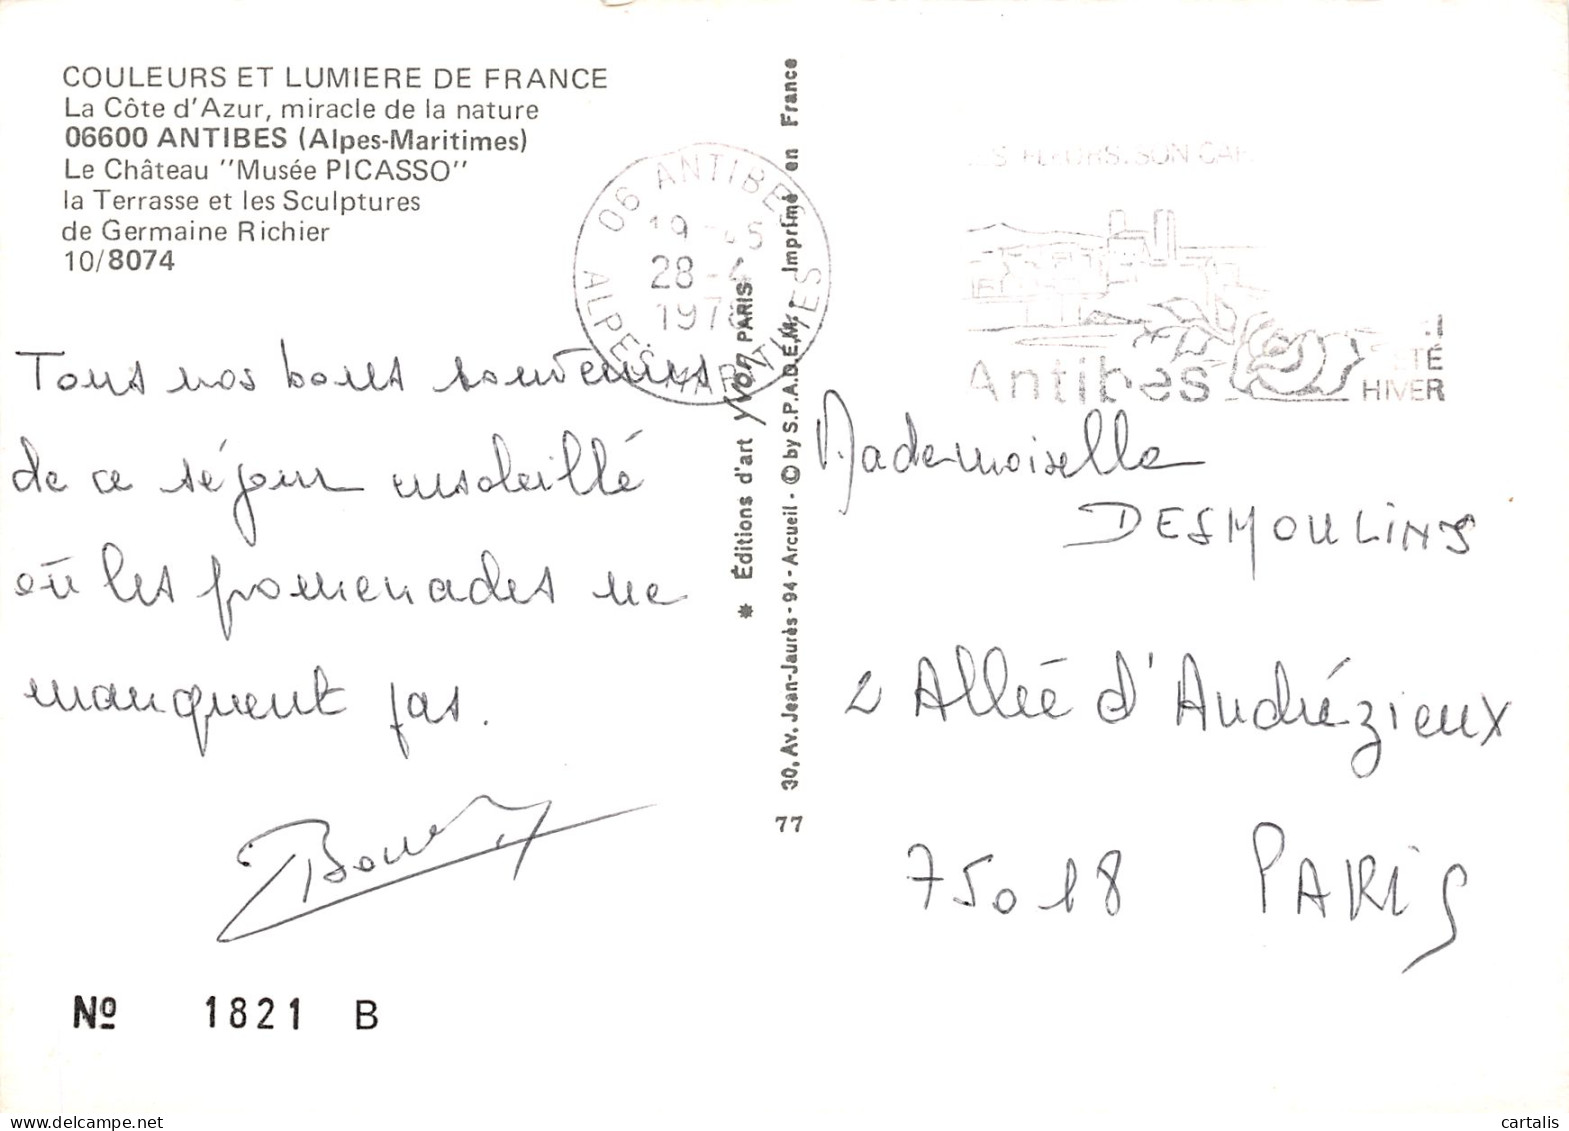 COULEURS ET LUMIERE DE FRANCE
La Côte d'Azur, miracle de la nature
06600 ANTIBES (Alpes-Maritimes)
Le Château "Musée PICASSO"
la Terrasse et les Sculptures
de Germaine Richier
10/8074
Tous nos bons souvenirs
de ce séjour ensoleillé
où les promenades ne
manquent pas.
Nº 1821 B
06 ANTIBES
28-4
ALPES MARITIMES
* Éditions d'art Yvon PARIS
30, Av. Jean-Jaurès - 94 - Arcueil - © by S.P.A.D.E.M. Imprimé en France
77
FLEURS. SON
Antibes
ÉTÉ
HIVER
Mademoiselle
DESMOULINS
2 Allée d'Andrézieux
75018 PARIS
cartalis